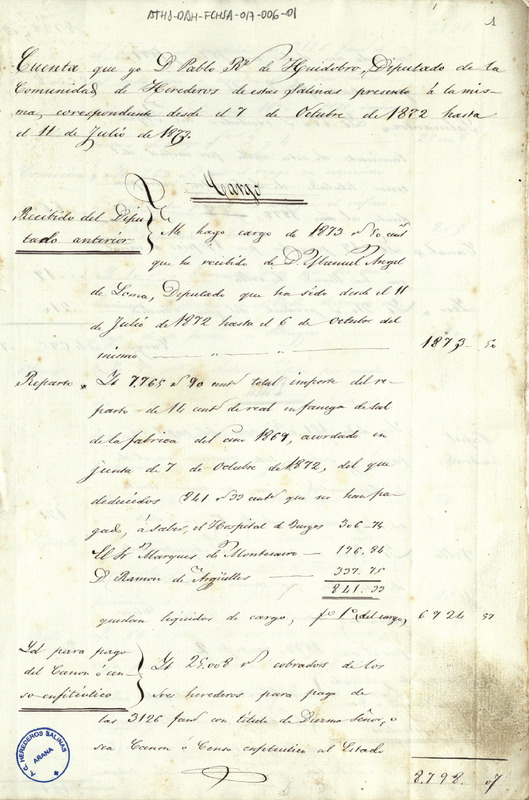 ATHA-DAH-FCHSA-017-006-01
1
Cuenta que yo D. Pablo Rz. de Huidobro, Diputado de la
Comunidad de Herederos de estas Salinas presento á la mis-
ma, correspondiente desde el 7 de Octubre de 1872 hasta
el 11 de Julio de 1873.
Cargo
Recibido del Dipu
tado anterior
Me hago cargo de 1873 rs 50 cents
que he recibido de D. Manuel Angel
de Loma, Diputado que ha sido desde el 11
de Julio de 1872 hasta el 6 de Octubre del
mismo 1873 50
Reparto. Id 7.765 rs 90 cents total importe del re-
parto de 14 cents de real en fanega de sal
de la fabrica del año 1869, acordado en
junta de 7 de Octubre de 1872, del que
deducidos 841 rs 33 cents que no han pa-
gado, á saber, el Hospital d Burgos 306.74
El Sr Marques de 196.84
D. Ramon de Argüelles 337.75
841.33
quedan liquidos de cargo, fo 1o (del cargo) 6924 57
Id para pago
del Canon ó cen-
so enfitéutico
Id 25.008 rs cobrados de los
Sres herederos para pago de
las 3126 fans con título de Diezmo Señor, o
sea Canon ó Censo enfiteutico al Estado
8.798. 07
T. C. HEREDEROS SALINAS
AÑANA